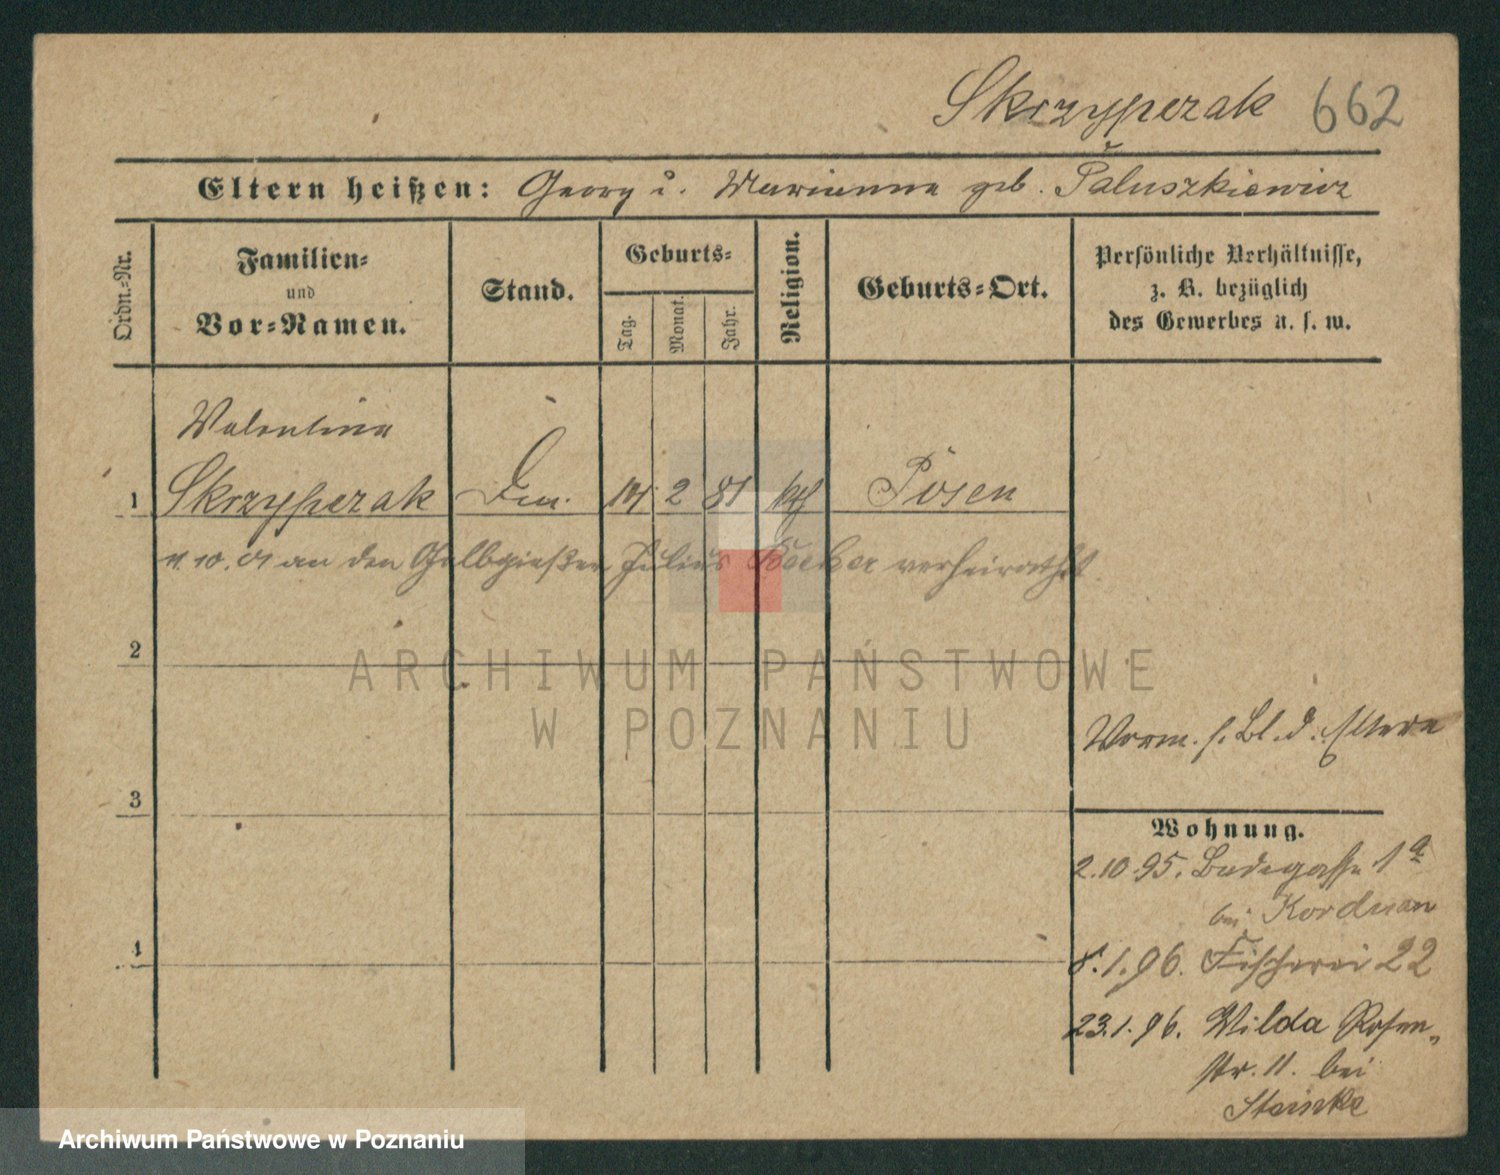 Skrzypczak 662
Eltern heißen: Georg u. Marianna geb. Paluszkiewicz
Ordn.-Nr.
Familien-
und
Vor-Namen.
Stand.
Geburts-
Tag.
Monat.
Jahr.
Religion.
Geburts-Ort.
Persönliche Verhältnisse,
z. B. bezüglich
des Gewerbes u. s. w.
Valentina
1 Skrzypczak 14 2 81 kth Posen
10. 01 an den Gelbgießer Julius verheirathet
2
ARCHIWUM PAŃSTWOWE
W POZNANIU
Vorm. s. Bl. d. Eltern
3
Wohnung.
2.10.95. Budegasse 1a
bei Korduan
4
8.1.96. Fischerei 22
23.1.96. Wilda Rosen-
str. 11. bei
Archiwum Państwowe w Poznaniu